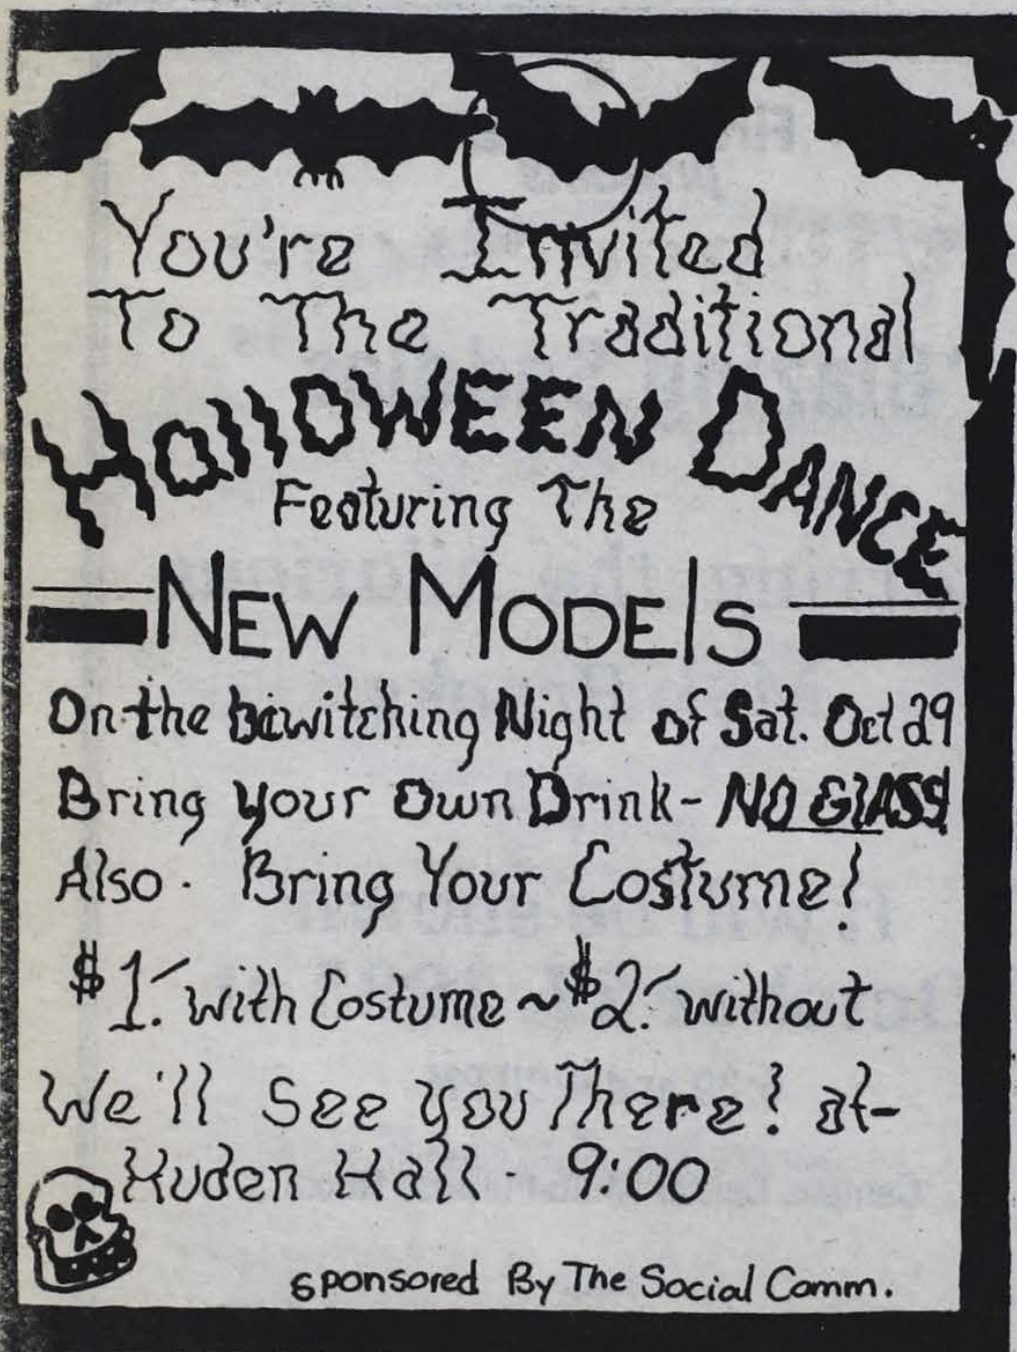 You're Invited
To The Traditional
HallOWEEN DANCE
Featuring The
NEW MODElS
On the bewitching Night of Sat. Oct 29
Bring your Own Drink - NO GlASS!
Also · Bring Your Costume!
$1.- with Costume ~ $2.- without
We'll See you There! at-
Huden Hall · 9:00
sponsored By The Social Comm.